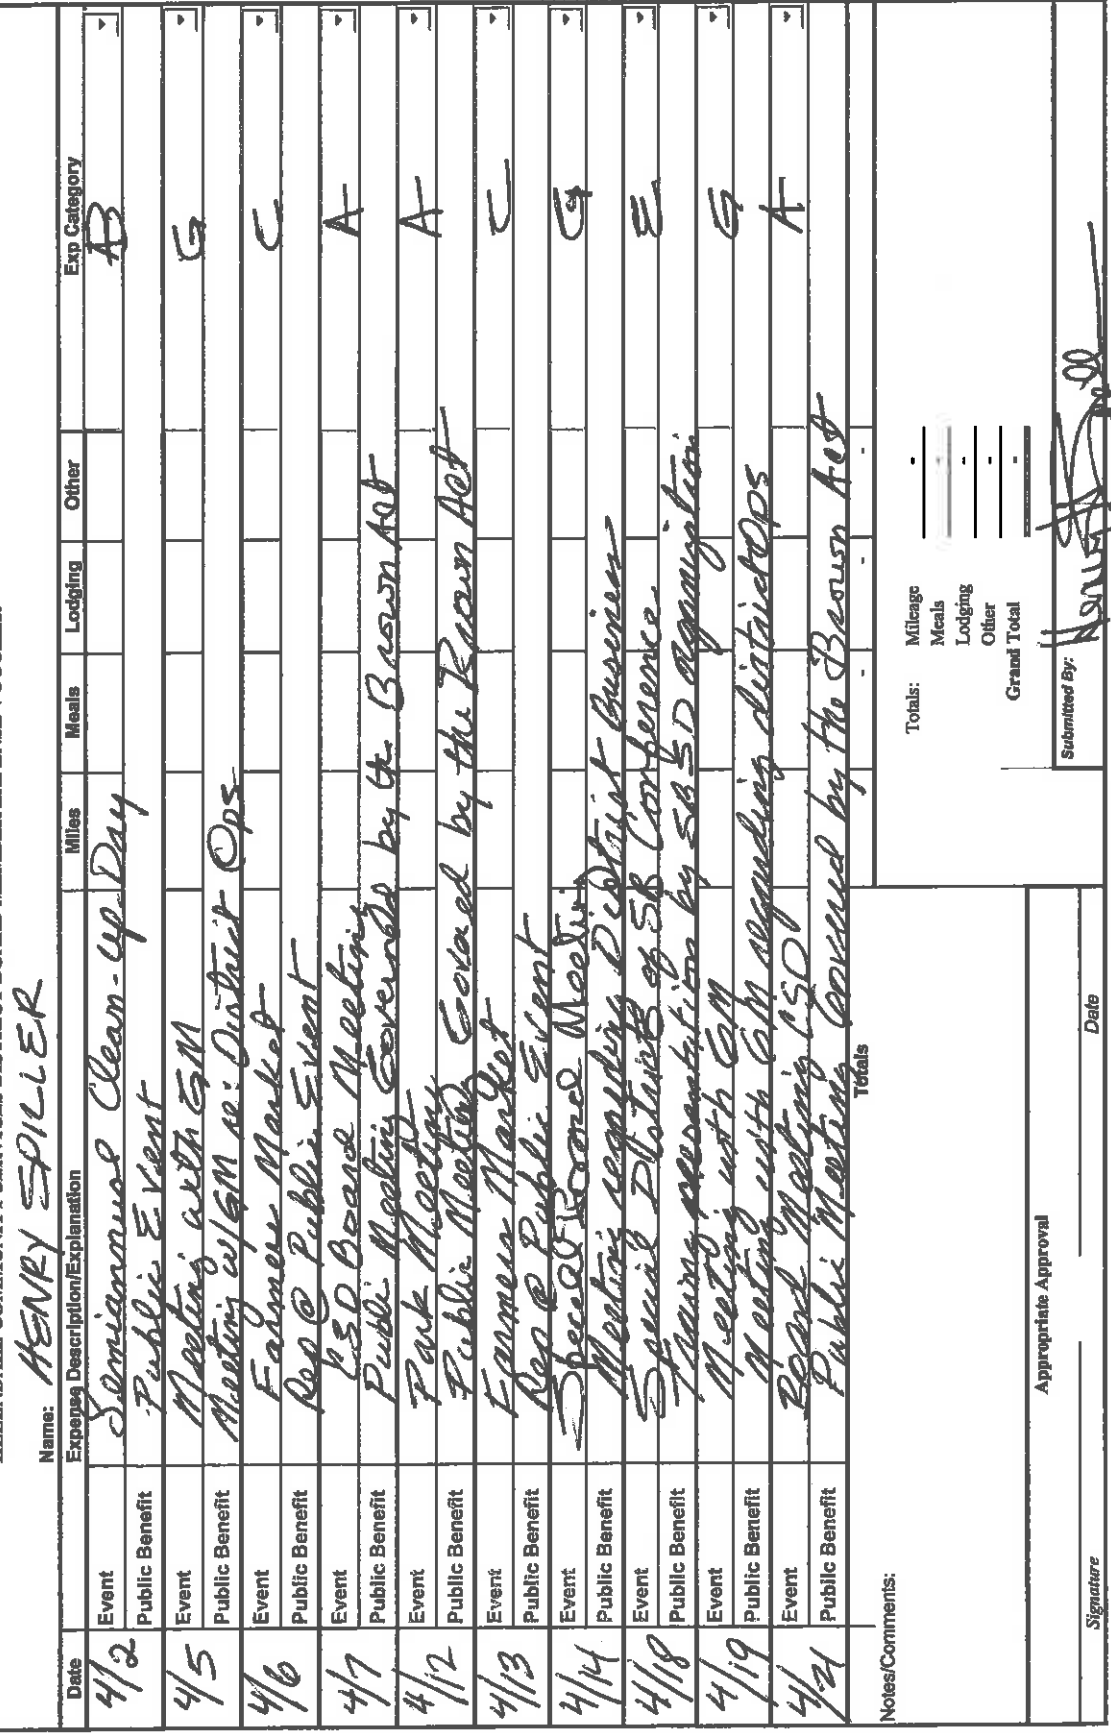 Name: HENRY SPILLER
Date Expense Description/Explanation Miles Meals Lodging Other Exp Category
4/2 Event Semiannual Clean-up Day B
Public Benefit Public Event
4/5 Event Meeting with GM G
Public Benefit Meeting w/GM re: District Ops
4/6 Event Farmers Market C
Public Benefit Rep @ Public Event
4/7 Event CSD Board Meeting A
Public Benefit Public Meeting Governed by the Brown Act
4/12 Event Park Meeting A
Public Benefit Public Meeting Goved by the Brown Act
4/13 Event Farmers Market C
Public Benefit Rep @ Public Event
4/14 Event Special Board Meeting G
Public Benefit Meeting regarding District Business
4/18 Event Special Districts of SB Conference E
Public Benefit Training presentation by SBSD
4/19 Event Meeting with GM G
Public Benefit Meeting with GM regarding district Ops
4/21 Event Board Meeting CSD A
Public Benefit Public Meeting Governed by the Brown Act
Totals - - -
Notes/Comments:
Totals: Mileage -
Meals -
Lodging -
Other -
Grand Total -
Appropriate Approval
Submitted By:
Signature Date